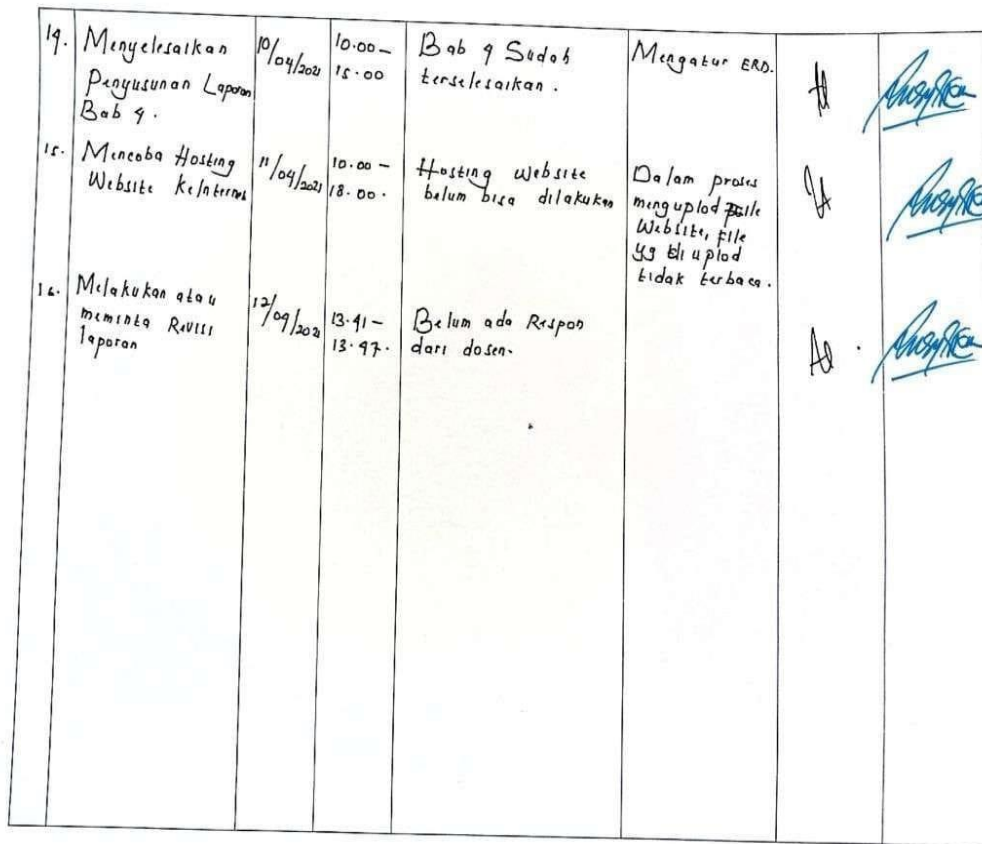 14.
Menyelesaikan
Penyusunan Laporan
Bab 4.
10/04/2021
10.00 –
15.00
Bab 4 Sudah
terselesaikan.
Mengatur ERD.
15.
Mencoba Hosting
Website keInternet
11/04/2021
10.00 –
18.00.
Hosting website
belum bisa dilakukan
Dalam proses
menguplod file
Website, File
yg di uplod
tidak terbaca.
16.
Melakukan atau
meminta Revisi
laporan
12/04/2021
13.41 –
13.47.
Belum ada Respon
dari dosen.